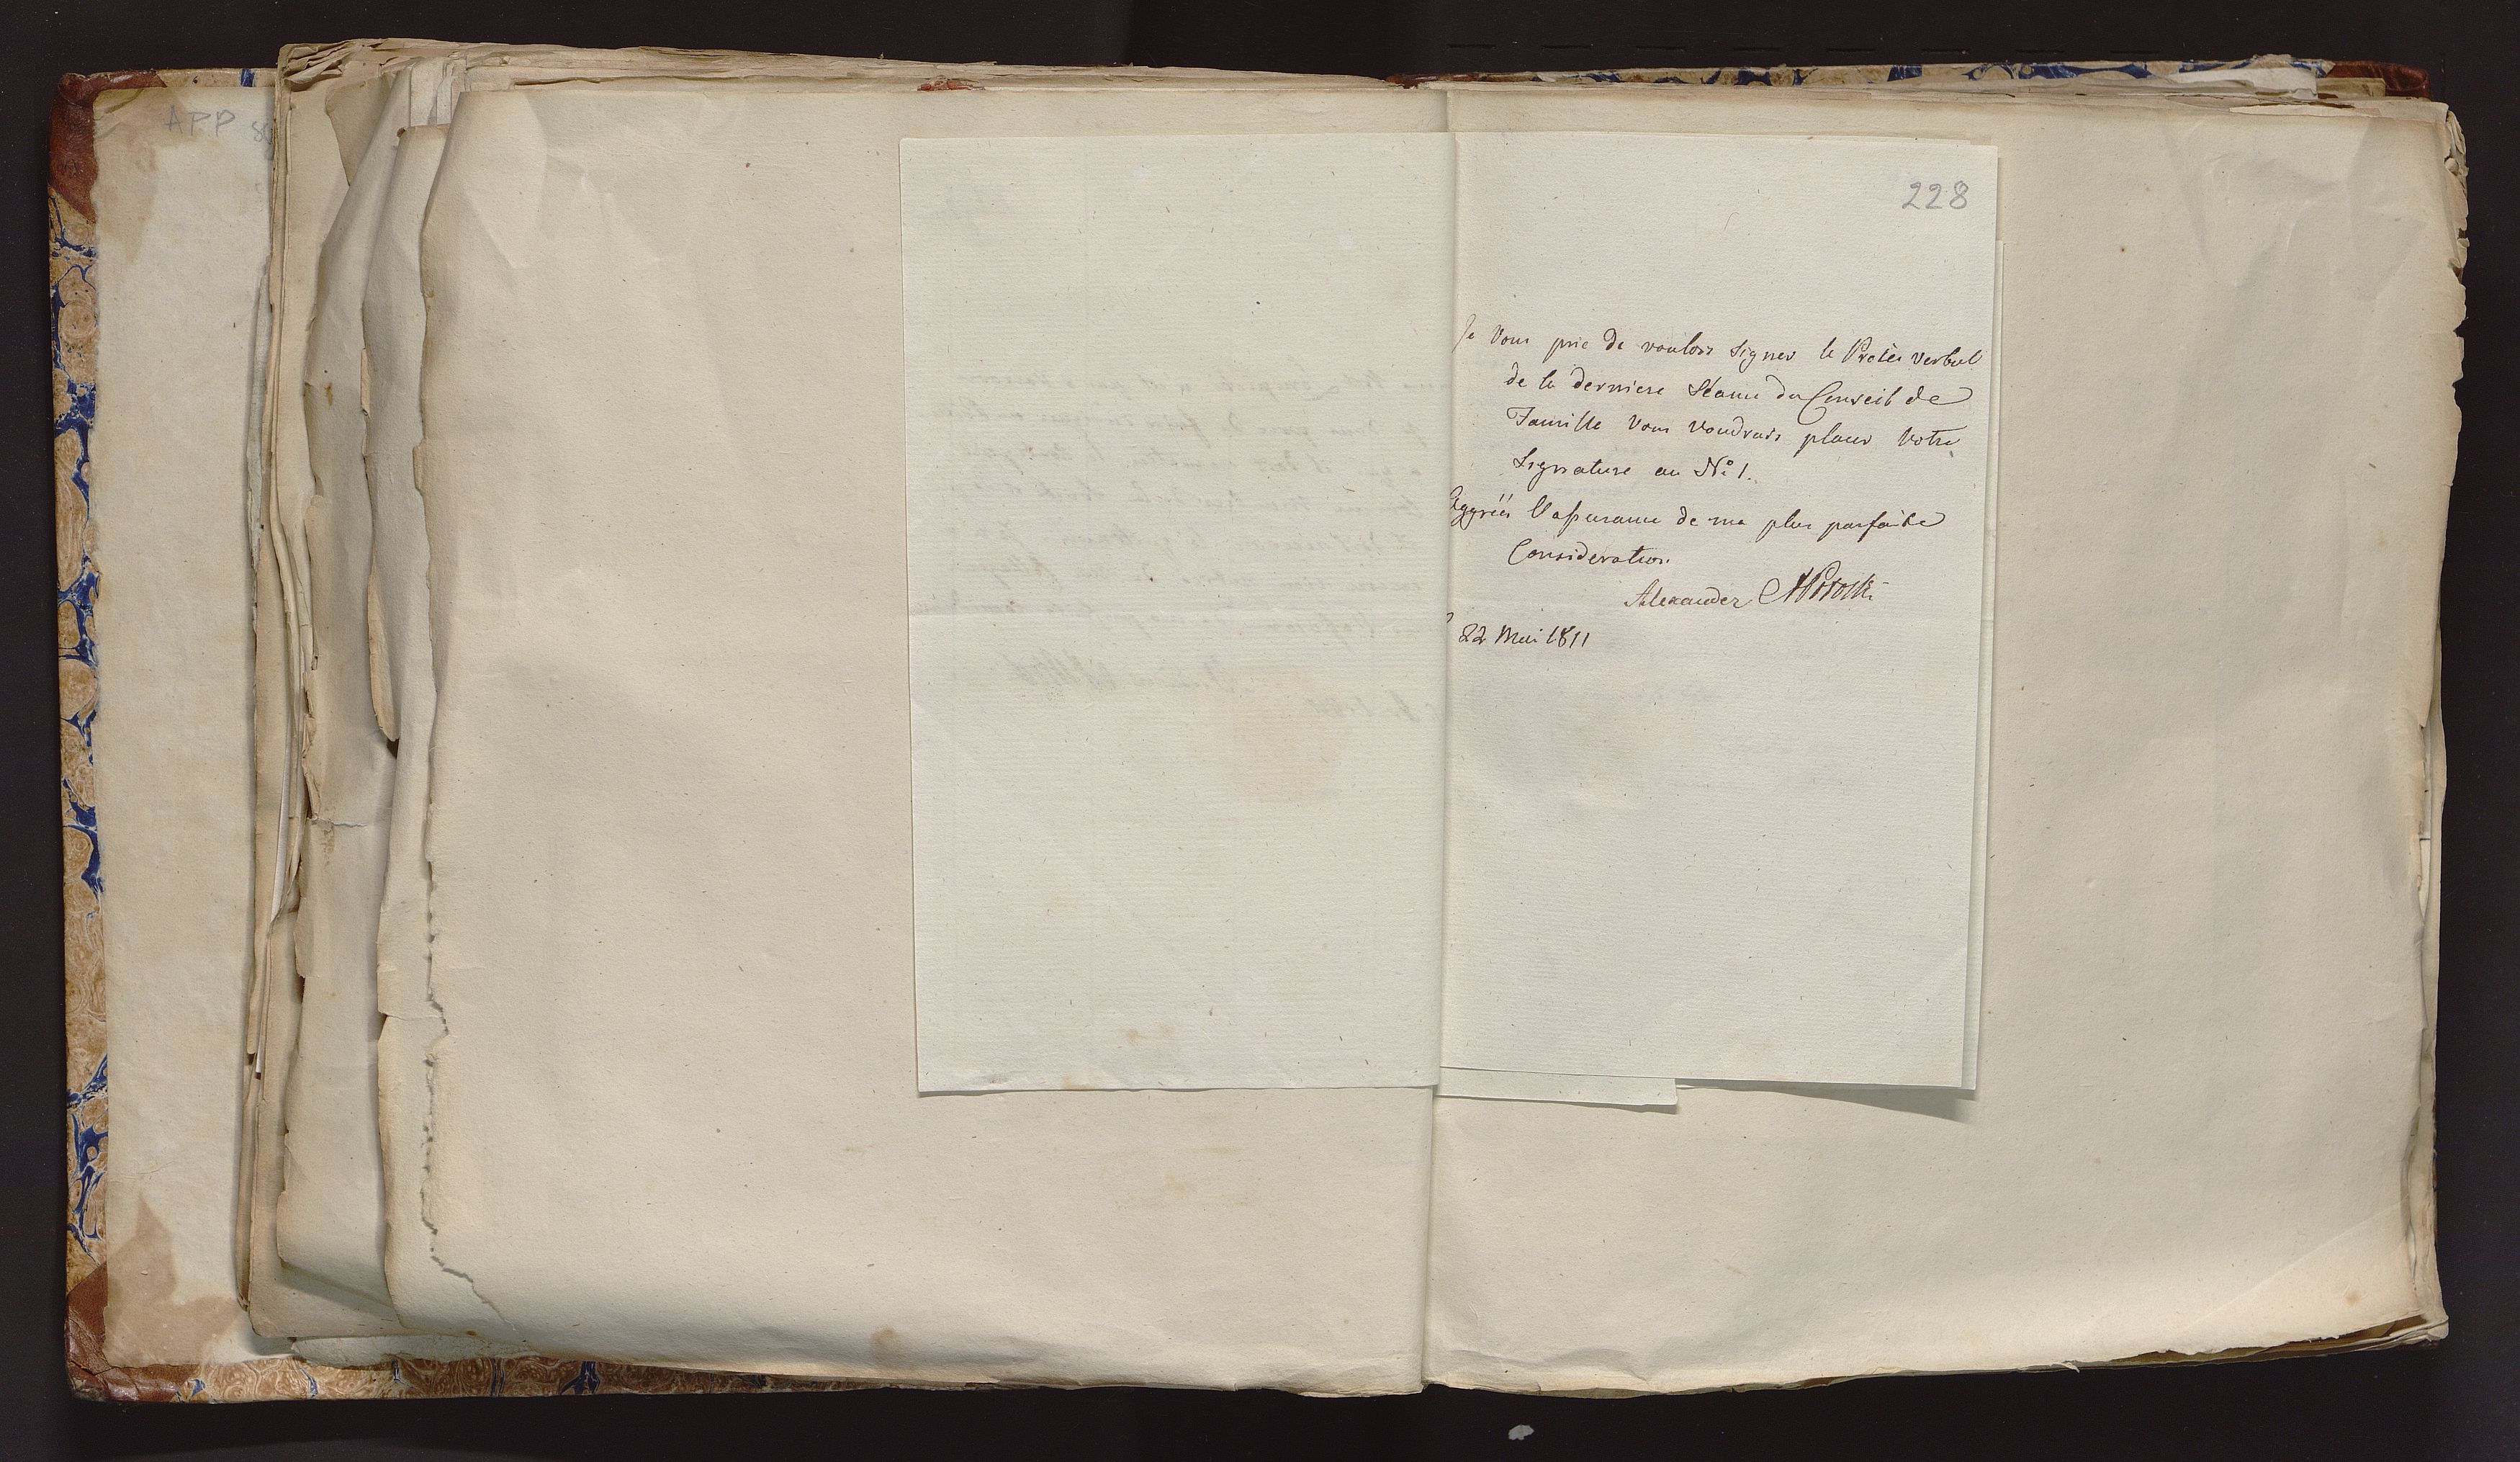 APP
228
Je Vous prie de vouloir signer le Procès verbal
de la derniere Séance du Conseil de
Famille Vous voudrais placer Votre
Signature au No 1.
Aggreés l'assurance de ma plus parfaite
Consideration
Alexander Potocki
22 Mai 1811